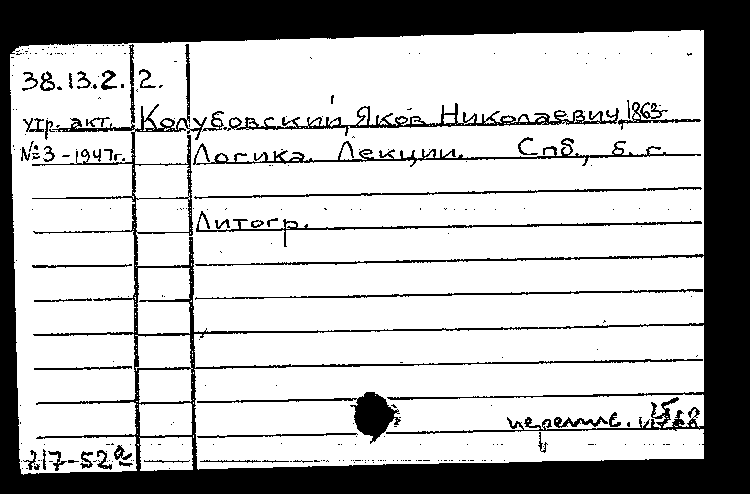 38.13.2.2.
утр. акт. Колубовский, Яков Николаевич, 1863-
№3-1947г. Логика. Лекции. Спб., б. г.
Литогр.
217-52а